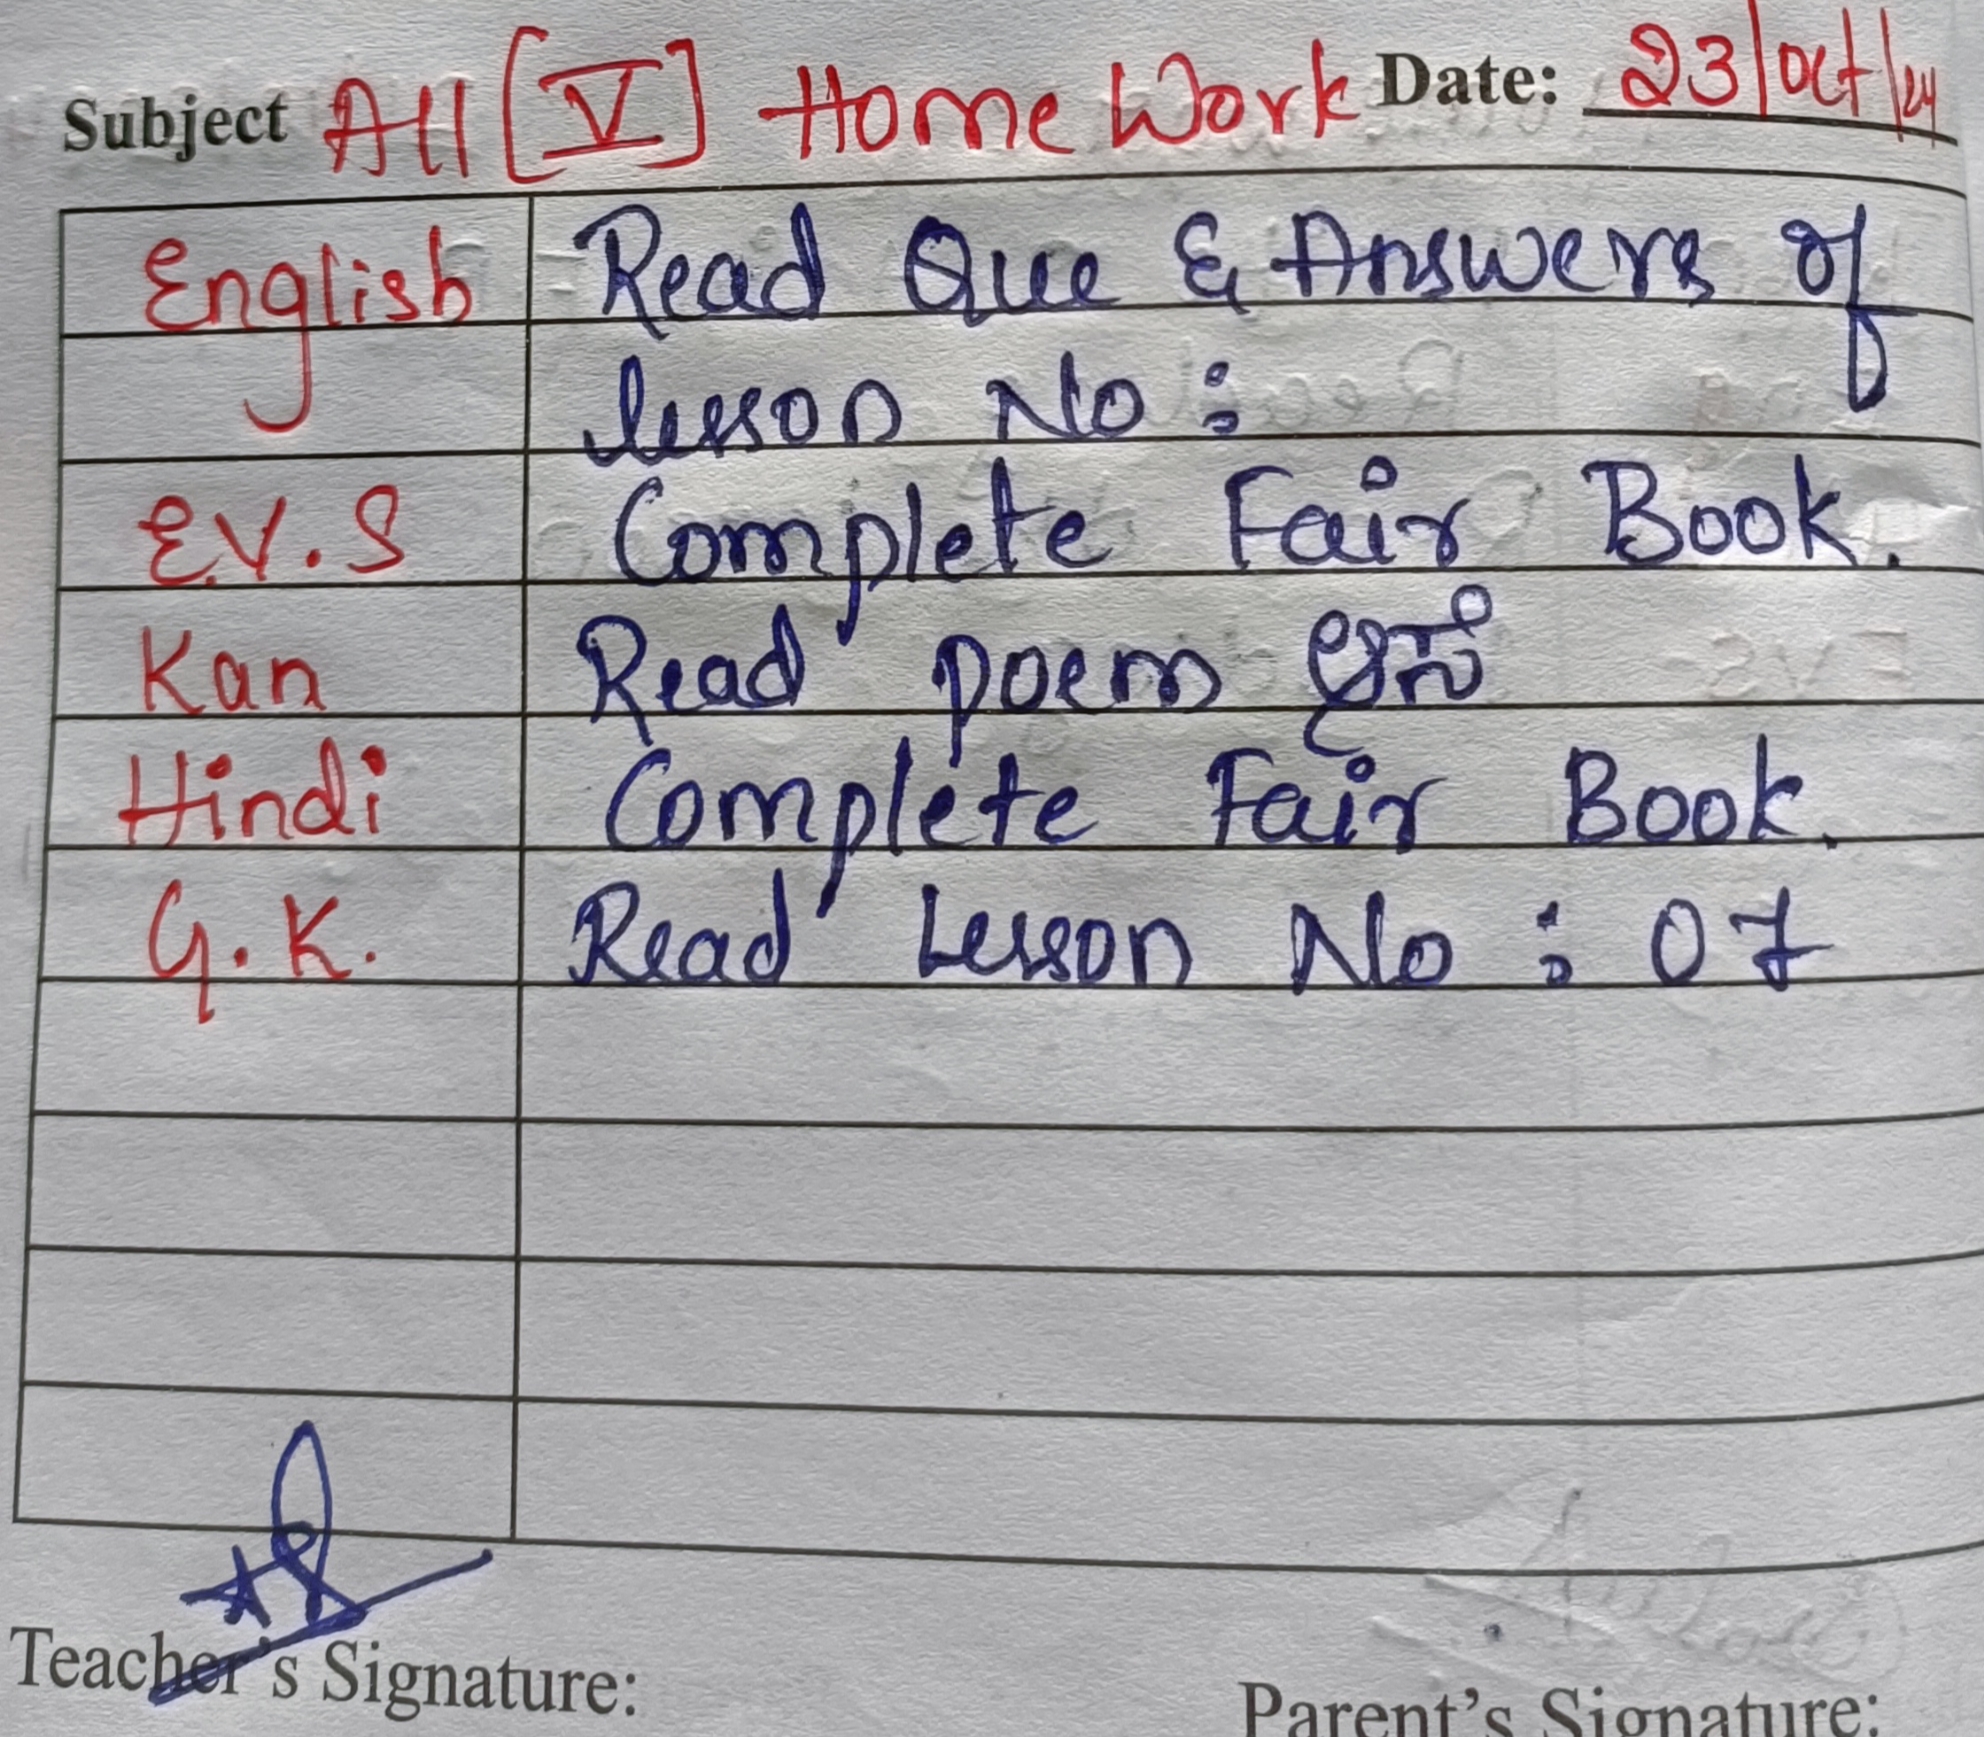 Subject All [V] Home Work Date: 23/Oct/24
English Read Que & Answers of
lesson No :
E.V.S Complete Fair Book.
Kan Read poem
Hindi Complete Fair Book.
G.K. Read Lesson No : 07
Teacher's Signature:
Parent's Signature: